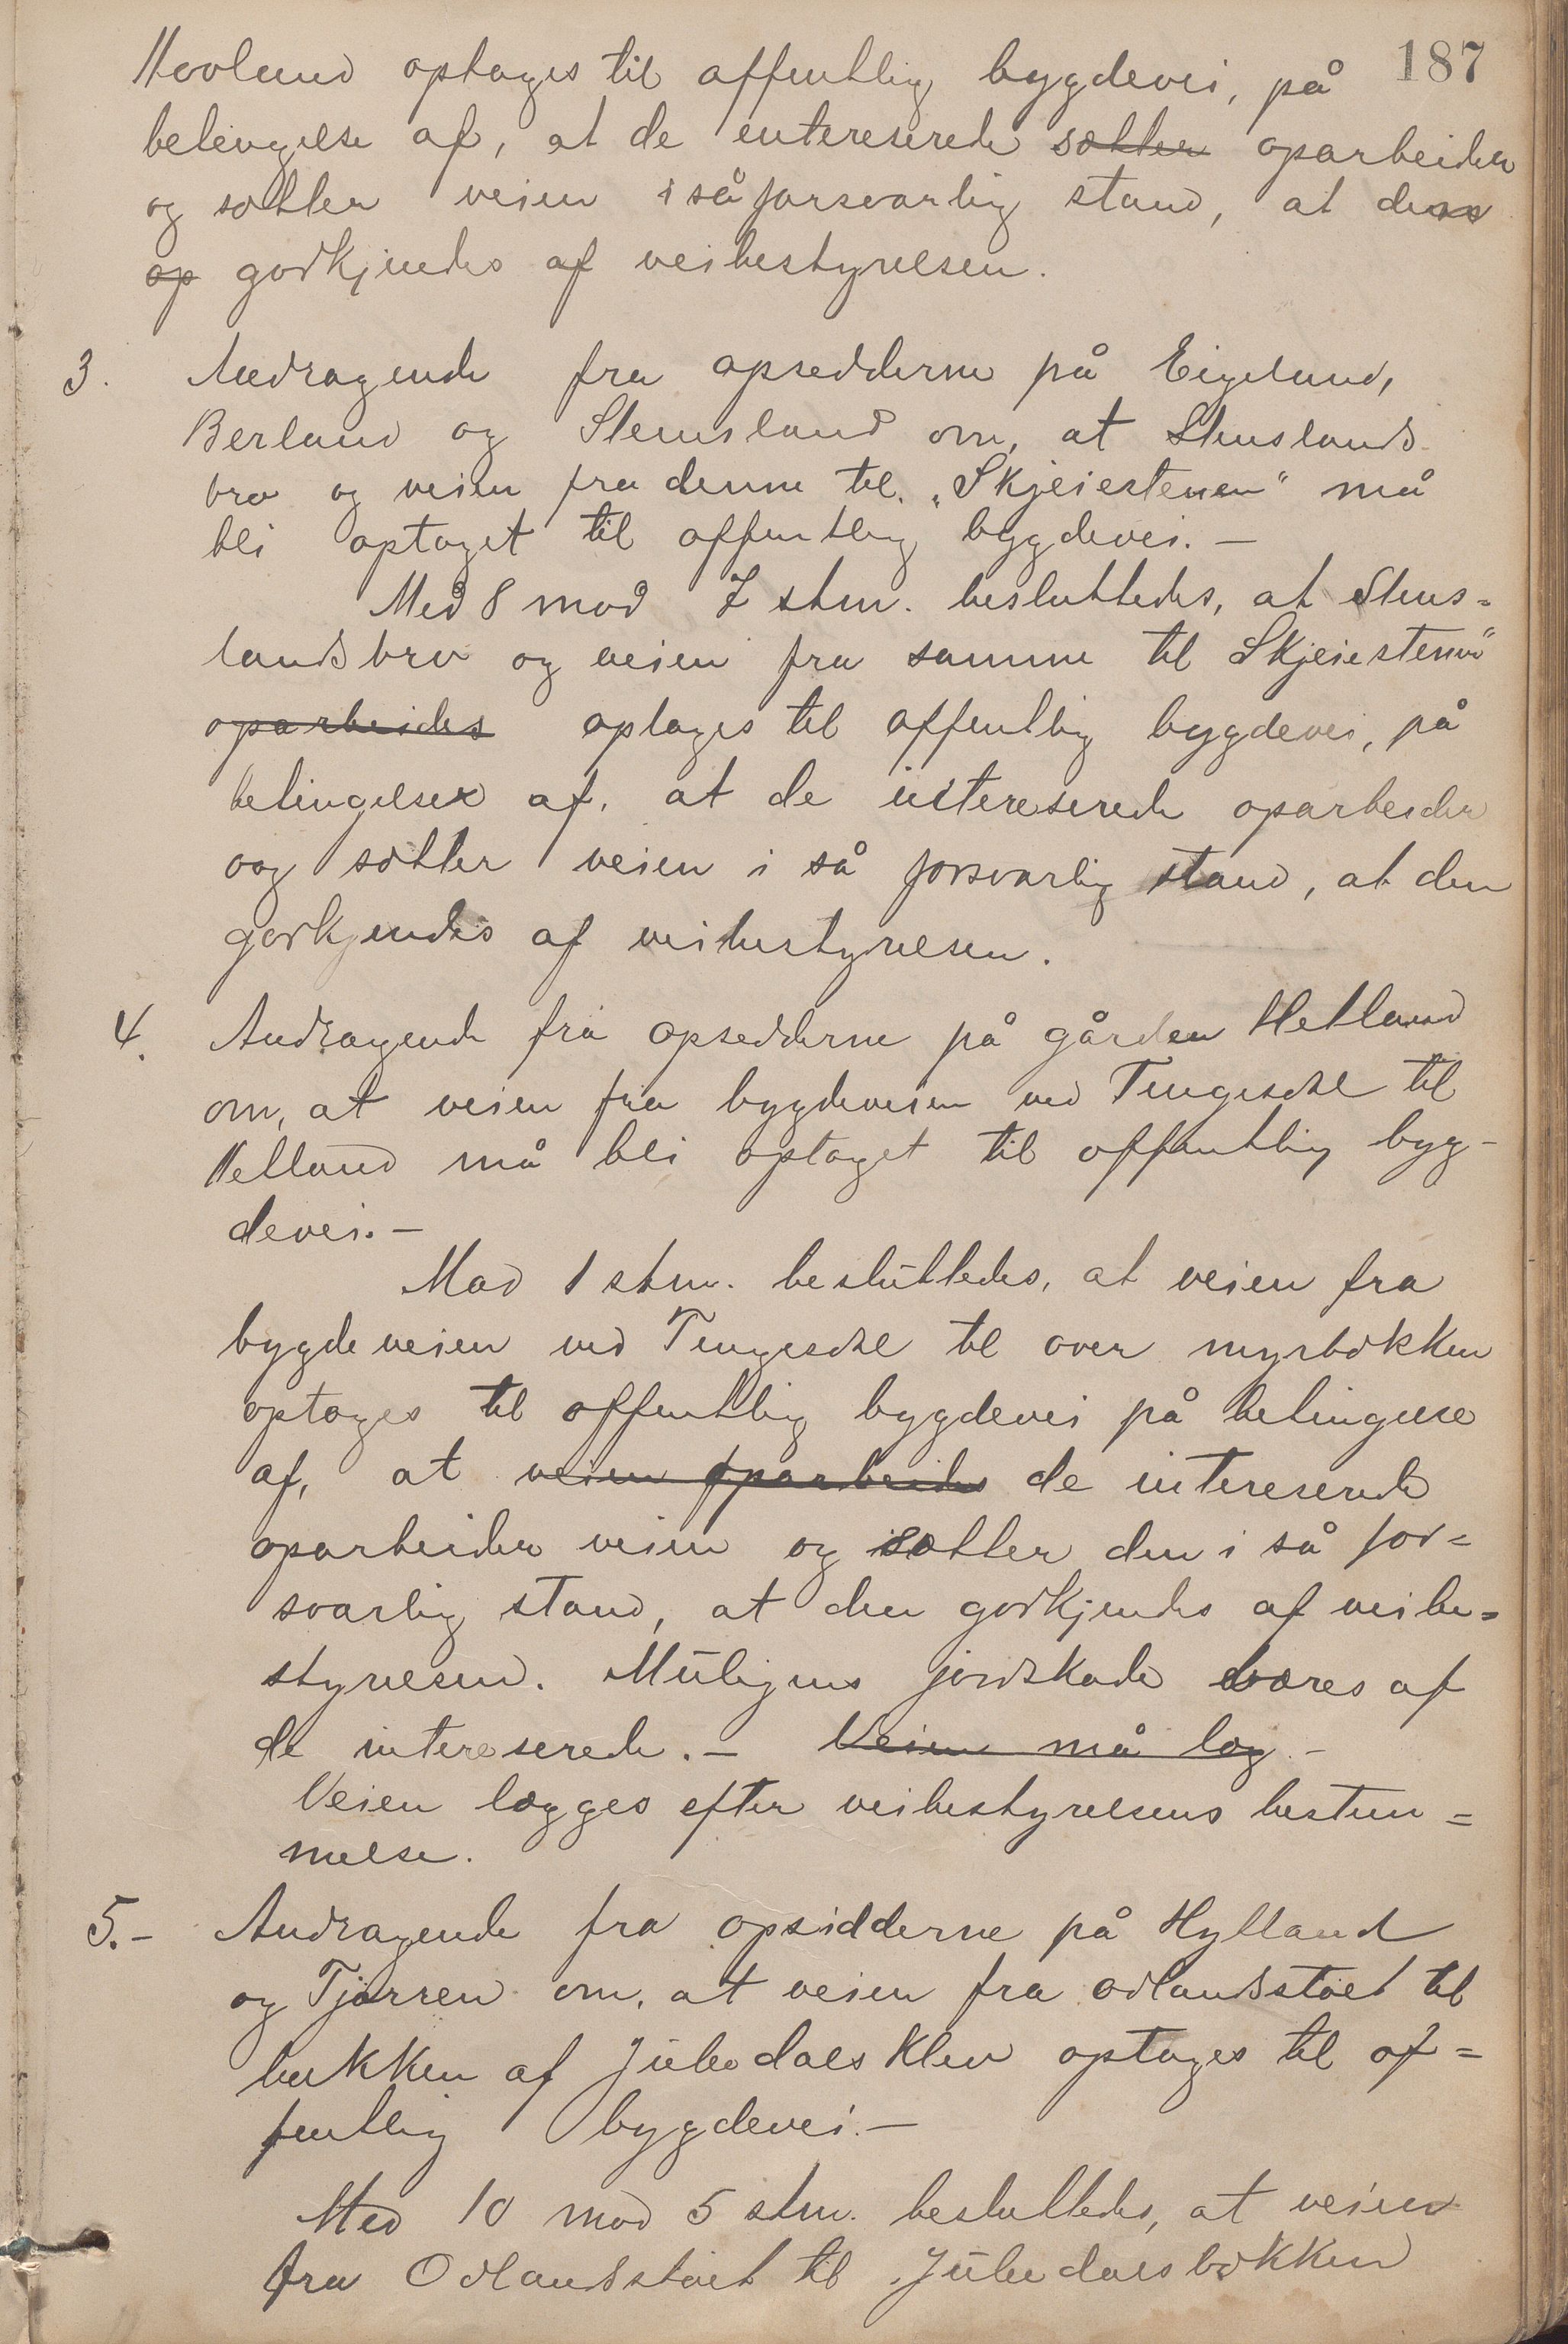 187
Hovland optages til offentlig bygdevei, på
betingelse af, at de intereserede sætter oparbeider
og sætter veien i så forsvarlig stand, at den
op godkjendes af veibestyrelsen.
3. Andragende fra opsidderne på Eigeland,
Berland og Stensland om, at Stenslands
bro og veien fra denne til „Skjeiestenen" må
bli optaget til offentlig bygdevei. —
Med 8 mod 7 stm. besluttedes, at Stens=
landsbro og veien fra samme til Skjeiestenen"
oparbeides optages til offentlig bygdevei, på
betingelse af, at de intereserede oparbeider
og sætter veien i så forsvarlig stand, at den
godkjendes af veibestyrelsen.
4. Andragende fra opsidderne på gården Hetland
om, at veien fra bygdeveien ved Tengesdal til
Hetland må bli optaget til offentlig byg-
devei. —
Mod 1 stm. besluttedes, at veien fra
bygdeveien ved Tengesdal til over myrbækken
optages til offentlig bygdevei på betingelse
af, at veien oparbeides de intereserede
oparbeider veien og sætter den i så for=
svarlig stand, at den godkjendes af veibe=
styrelsen. Muligens jordskade svares af
de intereserede. — Veien må læg —
Veien lægges efter veibestyrelsens bestem=
melse.
5. — Andragende fra opsidderne på Hylland
og Tjørren om, at veien fra Ødlandsstøet til
bækken af Juledals Klev optages til of=
fentlig bygdevei. —
Med 10 mod 5 stm. besluttedes, at veien
fra Ødlandsstøet til Juledalsbækken